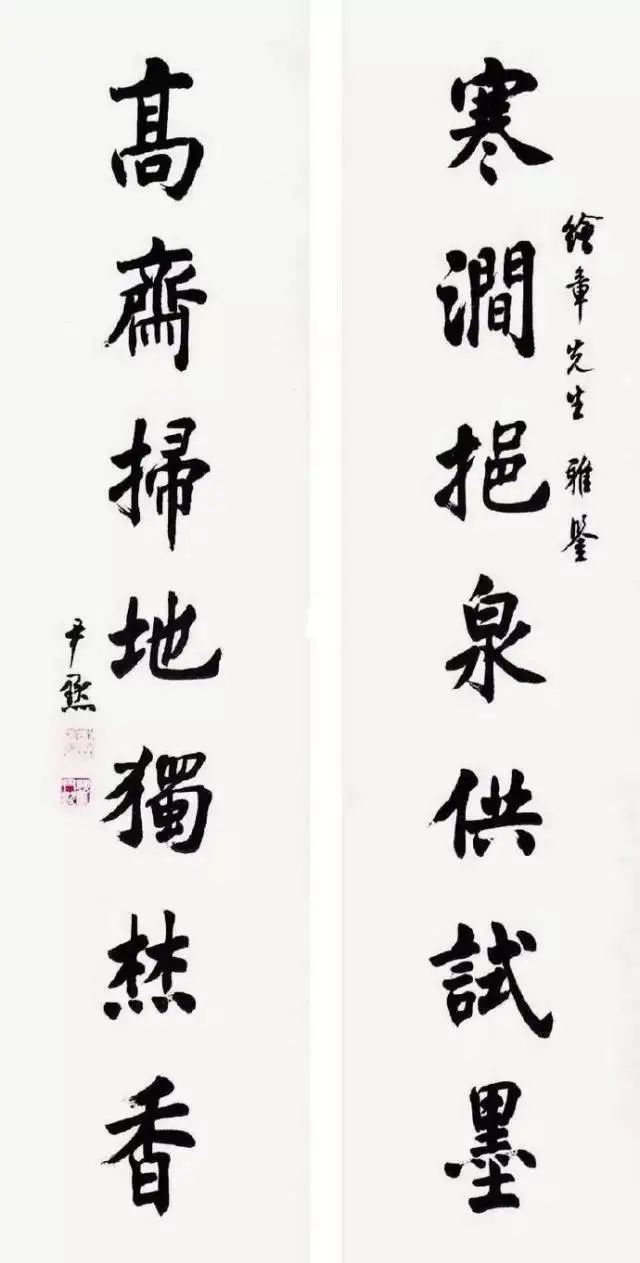 寒澗挹泉供試墨
繪章先生 雅鑒
高齋掃地獨焚香
尹默